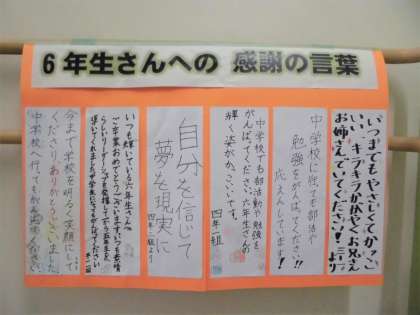 6年生さんへの 感謝の言葉
いつまでもやさしくてかっこ
いい キラキラかがやくお兄さん
お姉さんでいてください!
中学校に行っても部活や
勉強をがんばってください!!
おうえんしています!
中学校でも部活動や勉強を
がんばってください。六年生さんの
輝く姿がかっこいいです。
四年一組
自分を信じて
夢を現実に
四年二組より
いつも輝いている六年生さんへ
ご卒業おめでとうございます。いつも素晴
らしいリーダーシップを発揮して下さり五年生を
導いてくれました。
今まで学校を明るく笑顔にして
くださりありがとうございました。
中学校へ行っても